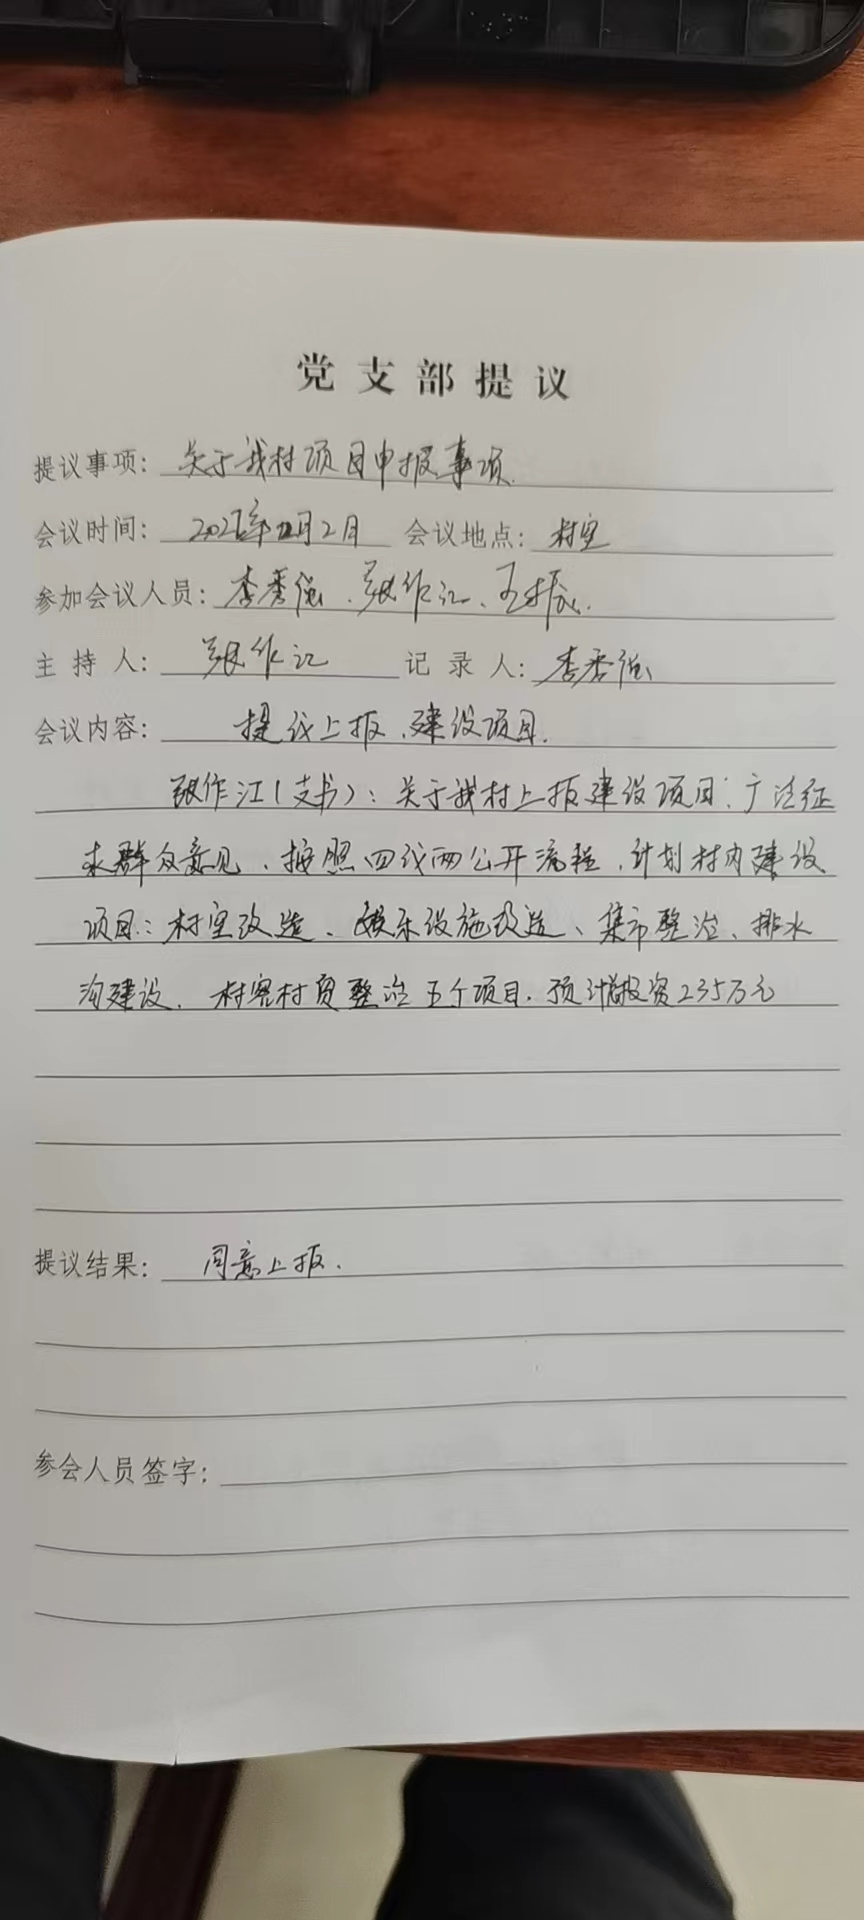 党支部提议
提议事项：关于我村项目申报事项.
会议时间：年月2日 会议地点：村室
参加会议人员：李秀强、张作江、王振
主持人：张作江 记录人：李秀强
会议内容：提议上报、建设项目.
张作江(支书)：关于我村上报建设项目，广泛征
求群众意见、按照四议两公开流程，计划村内建设
项目：村室改造、娱乐设施改造、集市整治、排水
沟建设、村容村貌整治五个项目.预计总投资235万元
提议结果：同意上报.
参会人员签字：